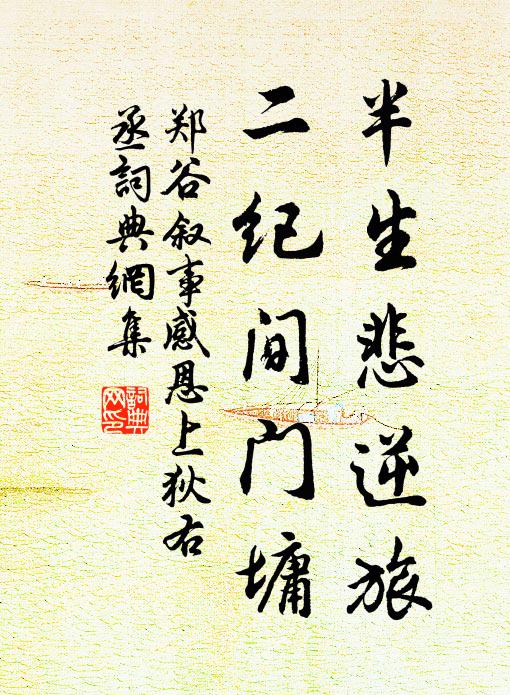 半生悲逆旅
二纪间门墉
郑谷叙事感恩上狄右
丞詞典網集
詞典
网印